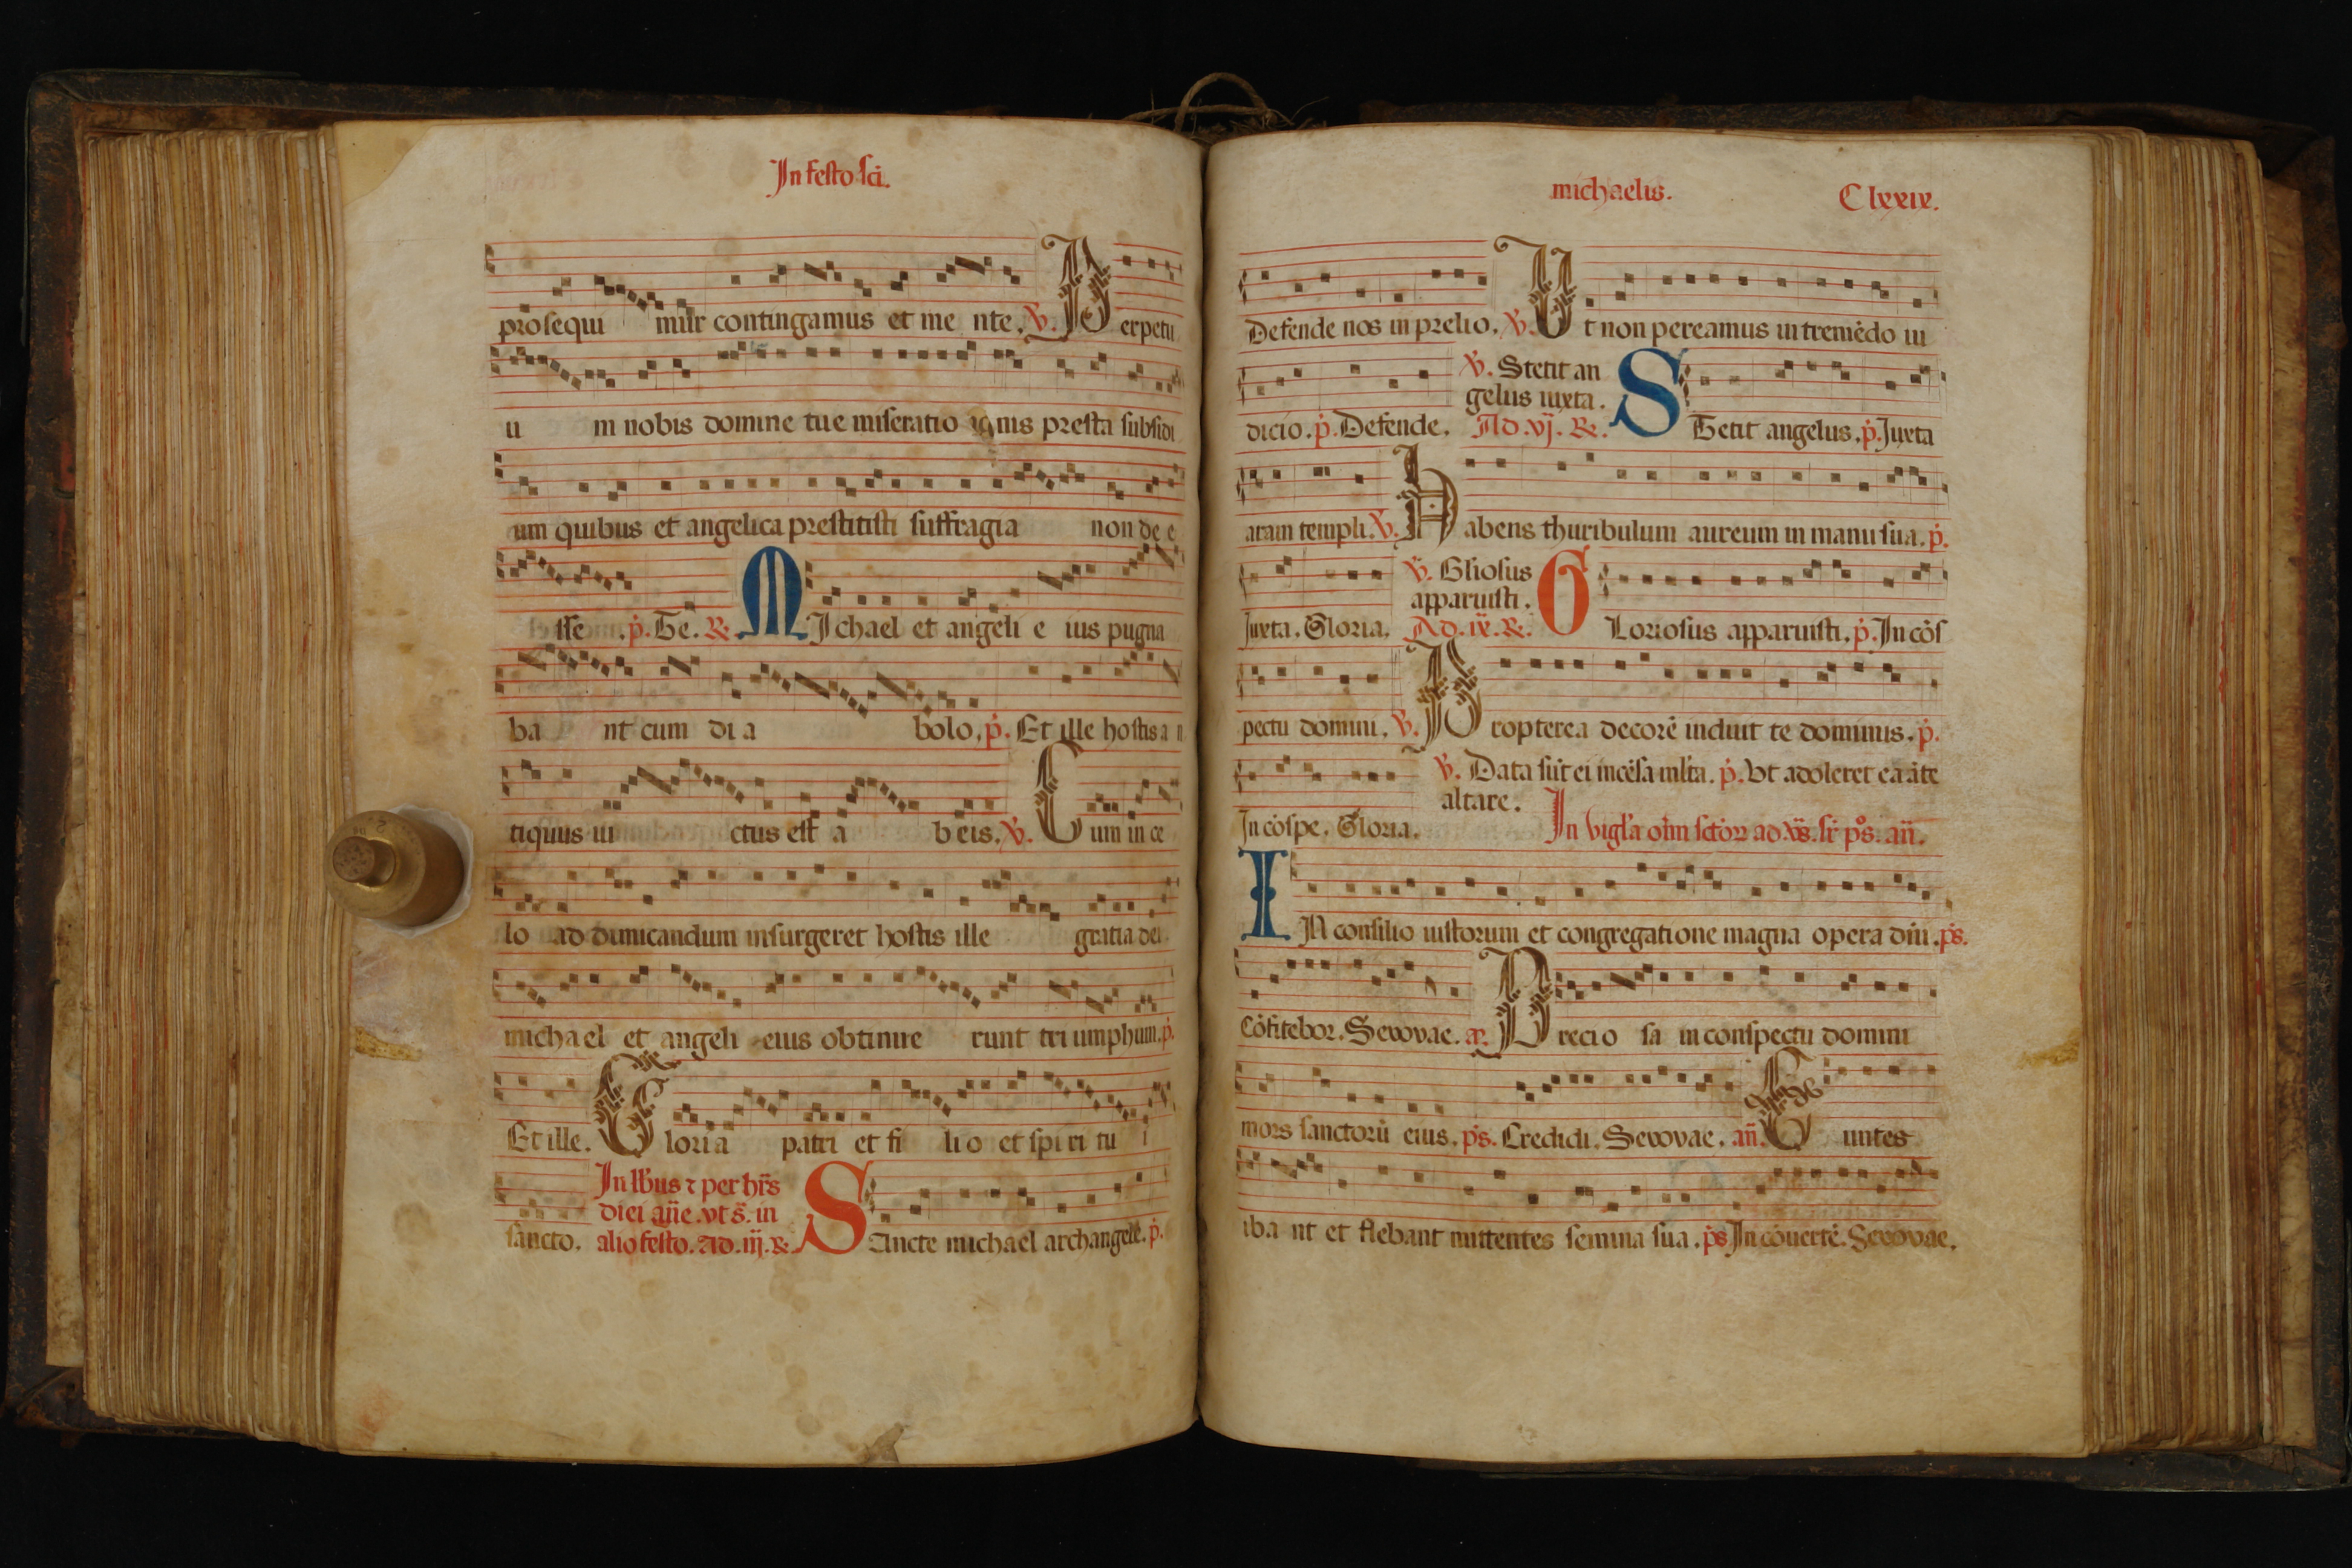 In festo sci.
prosequi mur contingamus et me nte. ꝟ. Perpetu
u m nobis domine tue miseratio nis presta subsidi
um quibus et angelica prestitisti suffragia non de e
sse. p̄. Te. ℞. MIchael et angeli e ius pugna
ba nt cum di a bolo. p̄. Et ille hostis a n
tiquus ui ctus est a b eis. ꝟ. Cum in ce
lo ad dimicandum insurgeret hostis ille gratia dei
michael et angeli eius obtinue runt tri umphum. p̄.
Et ille. Gloria patri et fi li o et spi ri tu i
In lb̄us ⁊ per hr̄s
diei an̄e. vt s̄. in
sancto. alio festo. Ad. iij. ℞. SAncte michael archangele. p̄.
michaelis. Clxxix.
Defende nos in prelio. ꝟ. Ut non pereamus in tremēdo iu
ꝟ. Stetit an
gelus iuxta.
dicio. p̄. Defende. Ad. vj. ℞. STetit angelus. p̄. Juxta
aram templi. ꝟ. Habens thuribulum aureum in manu sua. p̄.
ꝟ. Gliosus
apparuisti.
Juxta. Gloria. Ad. ix. ℞. GLoriosus apparuisti. p̄. In cōs
pectu domini. ꝟ. Propterea decorē induit te dominus. p̄.
ꝟ. Data sūt ei incēsa mlta. p̄. Vt adoleret ea āte
altare.
In cōspe. Gloria. In vigl'a oīm sctōꝝ ad vs̄. sr̄ ps̄. an̄.
IN consilio iustorum et congregatione magna opera dn̄i. ps̄.
Cōfitebor. Seuouae. Precio sa in conspectu domini
mors sanctorū eius. ps̄. Credidi. Seuouae. an̄. Euntes
iba nt et flebant mittentes semina sua. ps̄ In cōuertē. Seuouae.